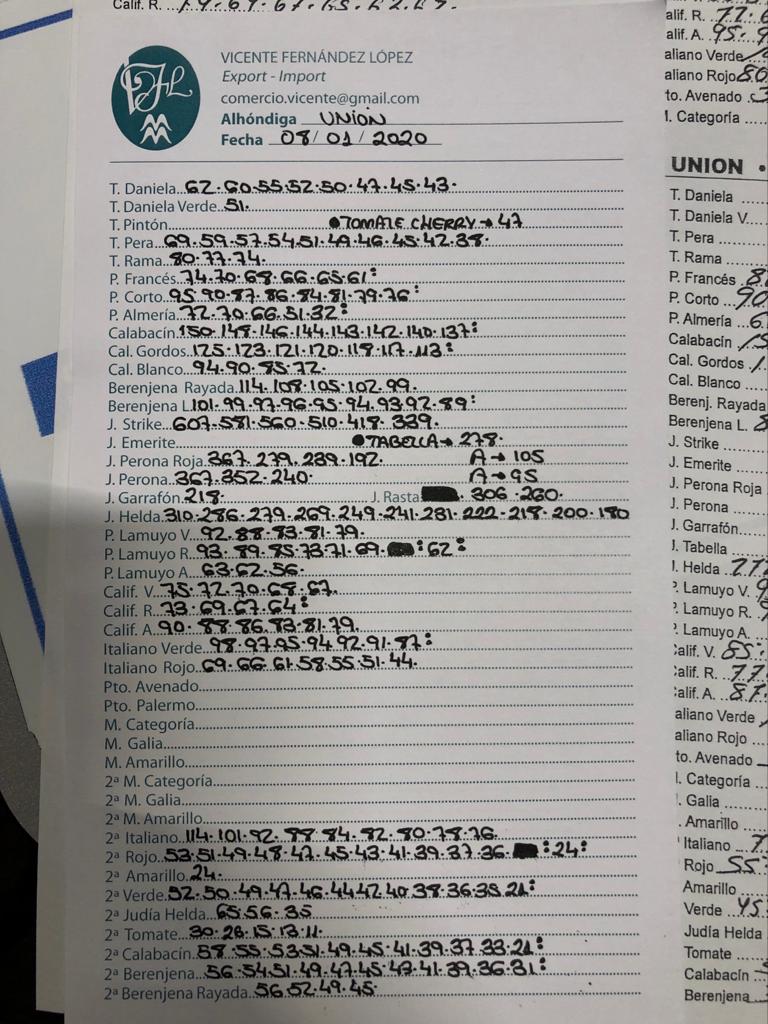 Calif. R.
VICENTE FERNÁNDEZ LÓPEZ
Export - Import
comercio.vicente@gmail.com
Alhóndiga UNION
Fecha 08/01/2020
T. Daniela...62.60.55.52.50.47.45.43.
T. Daniela Verde..51.
T. Pintón... •TOMATE CHERRY→47
T. Pera..69.59.57.54.51.49.46.45.42.38.
T. Rama..80.77.74.
P. Francés..74.70.68.66.65.61:
P. Corto..95.90.87.86.84.81.79.76:
P. Almería..72.70.66.51.32:
Calabacín.150.148.146.144.143.142.140.137:
Cal. Gordos..125.123.121.120.118.117.113:
Cal. Blanco..94.90.85.72.
Berenjena Rayada..114.108.105.102.99.
Berenjena L.101.99.97.96.95.94.93.92.89:
J. Strike..607.581.560.510.418.339.
J. Emerite... •TABELLA→278.
J. Perona Roja.367.279.239.192. A→105
J. Perona..367.352.240. A→95
J. Garrafón.218. J. Rasta 306.260.
J. Helda.310.286.279.269.249.241.231.222.218.200.180
P. Lamuyo V..92.88.83.81.79.
P. Lamuyo R..93.89.85.73.71.69. :62:
P. Lamuyo A..63.62.56.
Calif. V..75.72.70.68.67.
Calif. R..73.69.67.64:
Calif. A..90.88.86.83.81.79.
Italiano Verde..98.97.95.94.92.91.87:
Italiano Rojo..69.66.61.58.55.51.44.
Pto. Avenado
Pto. Palermo
M. Categoría
M. Galia
M. Amarillo
2ª M. Categoría
2ª M. Galia
2ª M. Amarillo
2ª Italiano..114.101.92.88.84.82.80.78.76.
2ª Rojo..53.51.49.48.47.45.43.41.39.37.36. :24:
2ª Amarillo.24.
2ª Verde..52.50.49.47.46.44.42.40.38.36.35.21:
2ª Judía Helda..65.56.35
2ª Tomate..30.26.15.13.11.
2ª Calabacín..58.55.53.51.49.45.41.39.37.33.21:
2ª Berenjena..56.54.51.49.47.45.43.41.39.36.31:
2ª Berenjena Rayada..56.52.49.45.
alif. R.
alif. A. 95.
aliano Verde
aliano Rojo 80
to. Avenado
l. Categoría
UNION •
T. Daniela
T. Daniela V.
T. Pera
T. Rama
P. Francés
P. Corto 90
P. Almería
Calabacín
Cal. Gordos
Cal. Blanco
Berenj. Rayada
Berenjena L.
J. Strike
J. Emerite
J. Perona Roja
J. Perona
J. Garrafón
J. Tabella
J. Helda
P. Lamuyo V.
P. Lamuyo R.
P. Lamuyo A.
Calif. V. 85.
Calif. R. 77
Calif. A. 87.
aliano Verde
aliano Rojo
to. Avenado
l. Categoría
. Galia
. Amarillo
Italiano
Rojo 55
Amarillo
Verde 45
Judía Helda
Tomate
Calabacín
Berenjena